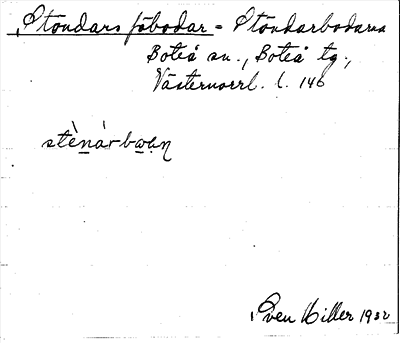 Stöndars fäbodar = Stöndarbodarna
Boteå sn., Boteå tg.,
Västernorrl. l. 146
stènárbωaṇ
Sven Hiller 1932